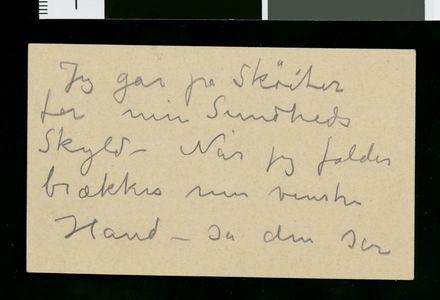 Jeg går på Skøiter
for min Sundheds
Skyld – Når jeg falder
brækkes min venstre
Hand – så den